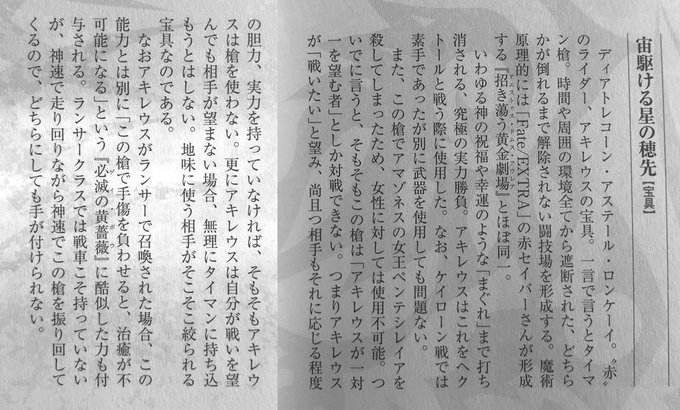 宙駆ける星の穂先【宝具】
ディアトレコーン・アステール・ロンケーイ。“赤”
のライダー、アキレウスの宝具。一言で言うとタイマ
ン槍。時間や周囲の環境全てから遮断された、どちら
かが倒れるまで解除されない闘技場を形成する。魔術
原理的には『Fate/EXTRA』の赤セイバーさんが形成
する『招き蕩う黄金劇場』とほぼ同一。
いわゆる神の祝福や幸運のような「まぐれ」まで打ち
消される、究極の実力勝負。アキレウスはこれをヘク
トールと戦う際に使用した。なお、ケイローン戦では
素手であったが別に武器を使用しても問題ない。
また、この槍でアマゾネスの女王ペンテシレイアを
殺してしまったため、女性に対しては使用不可能。つ
いでに言うと、そもそもこの槍は「アキレウスが一対
一を望む者」としか対戦できない。つまりアキレウス
が「戦いたい」と望み、尚且つ相手もそれに応じる程度
の胆力、実力を持っていなければ、そもそもアキレウ
スは槍を使わない。更にアキレウスは自分が戦いを望
んでも相手が望まない場合、無理にタイマンに持ち込
もうとはしない。地味に使う相手がそこそこ絞られる
宝具なのである。
なおアキレウスがランサーで召喚された場合、この
能力とは別に「この槍で手傷を負わせると、治癒が不
可能になる」という『必滅の黄薔薇』に酷似した力も付
与される。ランサークラスでは戦車こそ持っていない
が、神速で走り回りながら神速でこの槍を振り回して
くるので、どちらにしても手が付けられない。